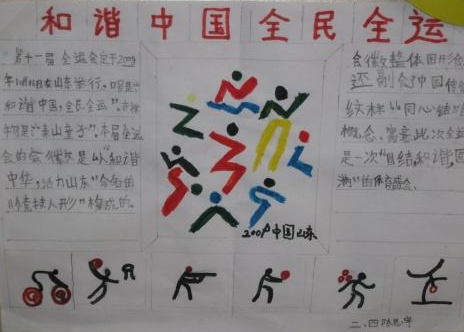 和谐中国全民全运
第十一届全运会定于2009
年10月16日在山东举行。口号是
和谐中国,全民全运”。吉祥
物是“泰山童子”。本届全运
会的会徽是以“和谐
中华,活力山东”命名的
“竞技人形”构成的。
会徽整体图形
还融合中国传
纹样“同心结
概念,寓意此次全运
是一次“团结和谐圆
满”的体育盛会。
2009中国山东
二.四